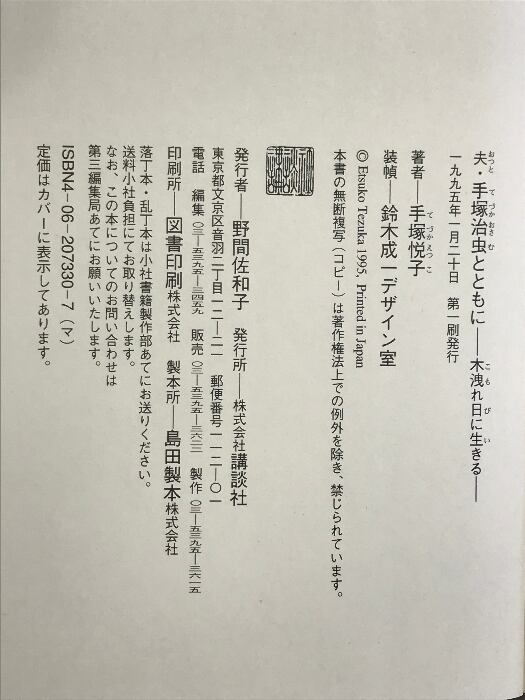 夫・手塚治虫とともに──木洩れ日に生きる──
一九九五年一月二十日　第一刷発行
著者──手塚悦子
装幀──鈴木成一デザイン室
© Etsuko Tezuka 1995, Printed in Japan
本書の無断複写（コピー）は著作権法上での例外を除き、禁じられています。
発行者──野間佐和子　発行所──株式会社講談社
東京都文京区音羽二丁目一二─二一　郵便番号一一二─〇一
電話　編集〇三─五三九五─三四五九　販売〇三─五三九五─三六二三　製作〇三─五三九五─三六一五
印刷所──図書印刷株式会社　製本所──島田製本株式会社
落丁本・乱丁本は小社書籍製作部あてにお送りください。
送料小社負担にてお取り替えします。
なお、この本についてのお問い合わせは
第三編集局あてにお願いいたします。
ISBN4-06-207330-7（マ）
定価はカバーに表示してあります。